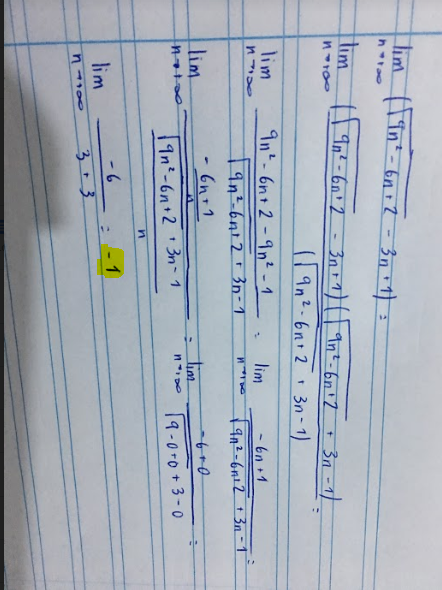 lim n→+∞ (√(9n²-6n+2) - 3n+1) =
lim n→+∞ (√(9n²-6n+2) - 3n+1)(√(9n²-6n+2) + 3n-1) / (√(9n²-6n+2) + 3n-1) =
lim n→+∞ (9n²-6n+2-9n²-1) / (√(9n²-6n+2) + 3n-1) = lim n→+∞ (-6n+1) / (√(9n²-6n+2) + 3n-1) =
lim n→+∞ ((-6n+1)/n) / ((√(9n²-6n+2) + 3n-1)/n) = lim n→+∞ (-6+0) / (√(9-0+0) + 3-0) =
lim n→+∞ -6 / (3+3) = -1